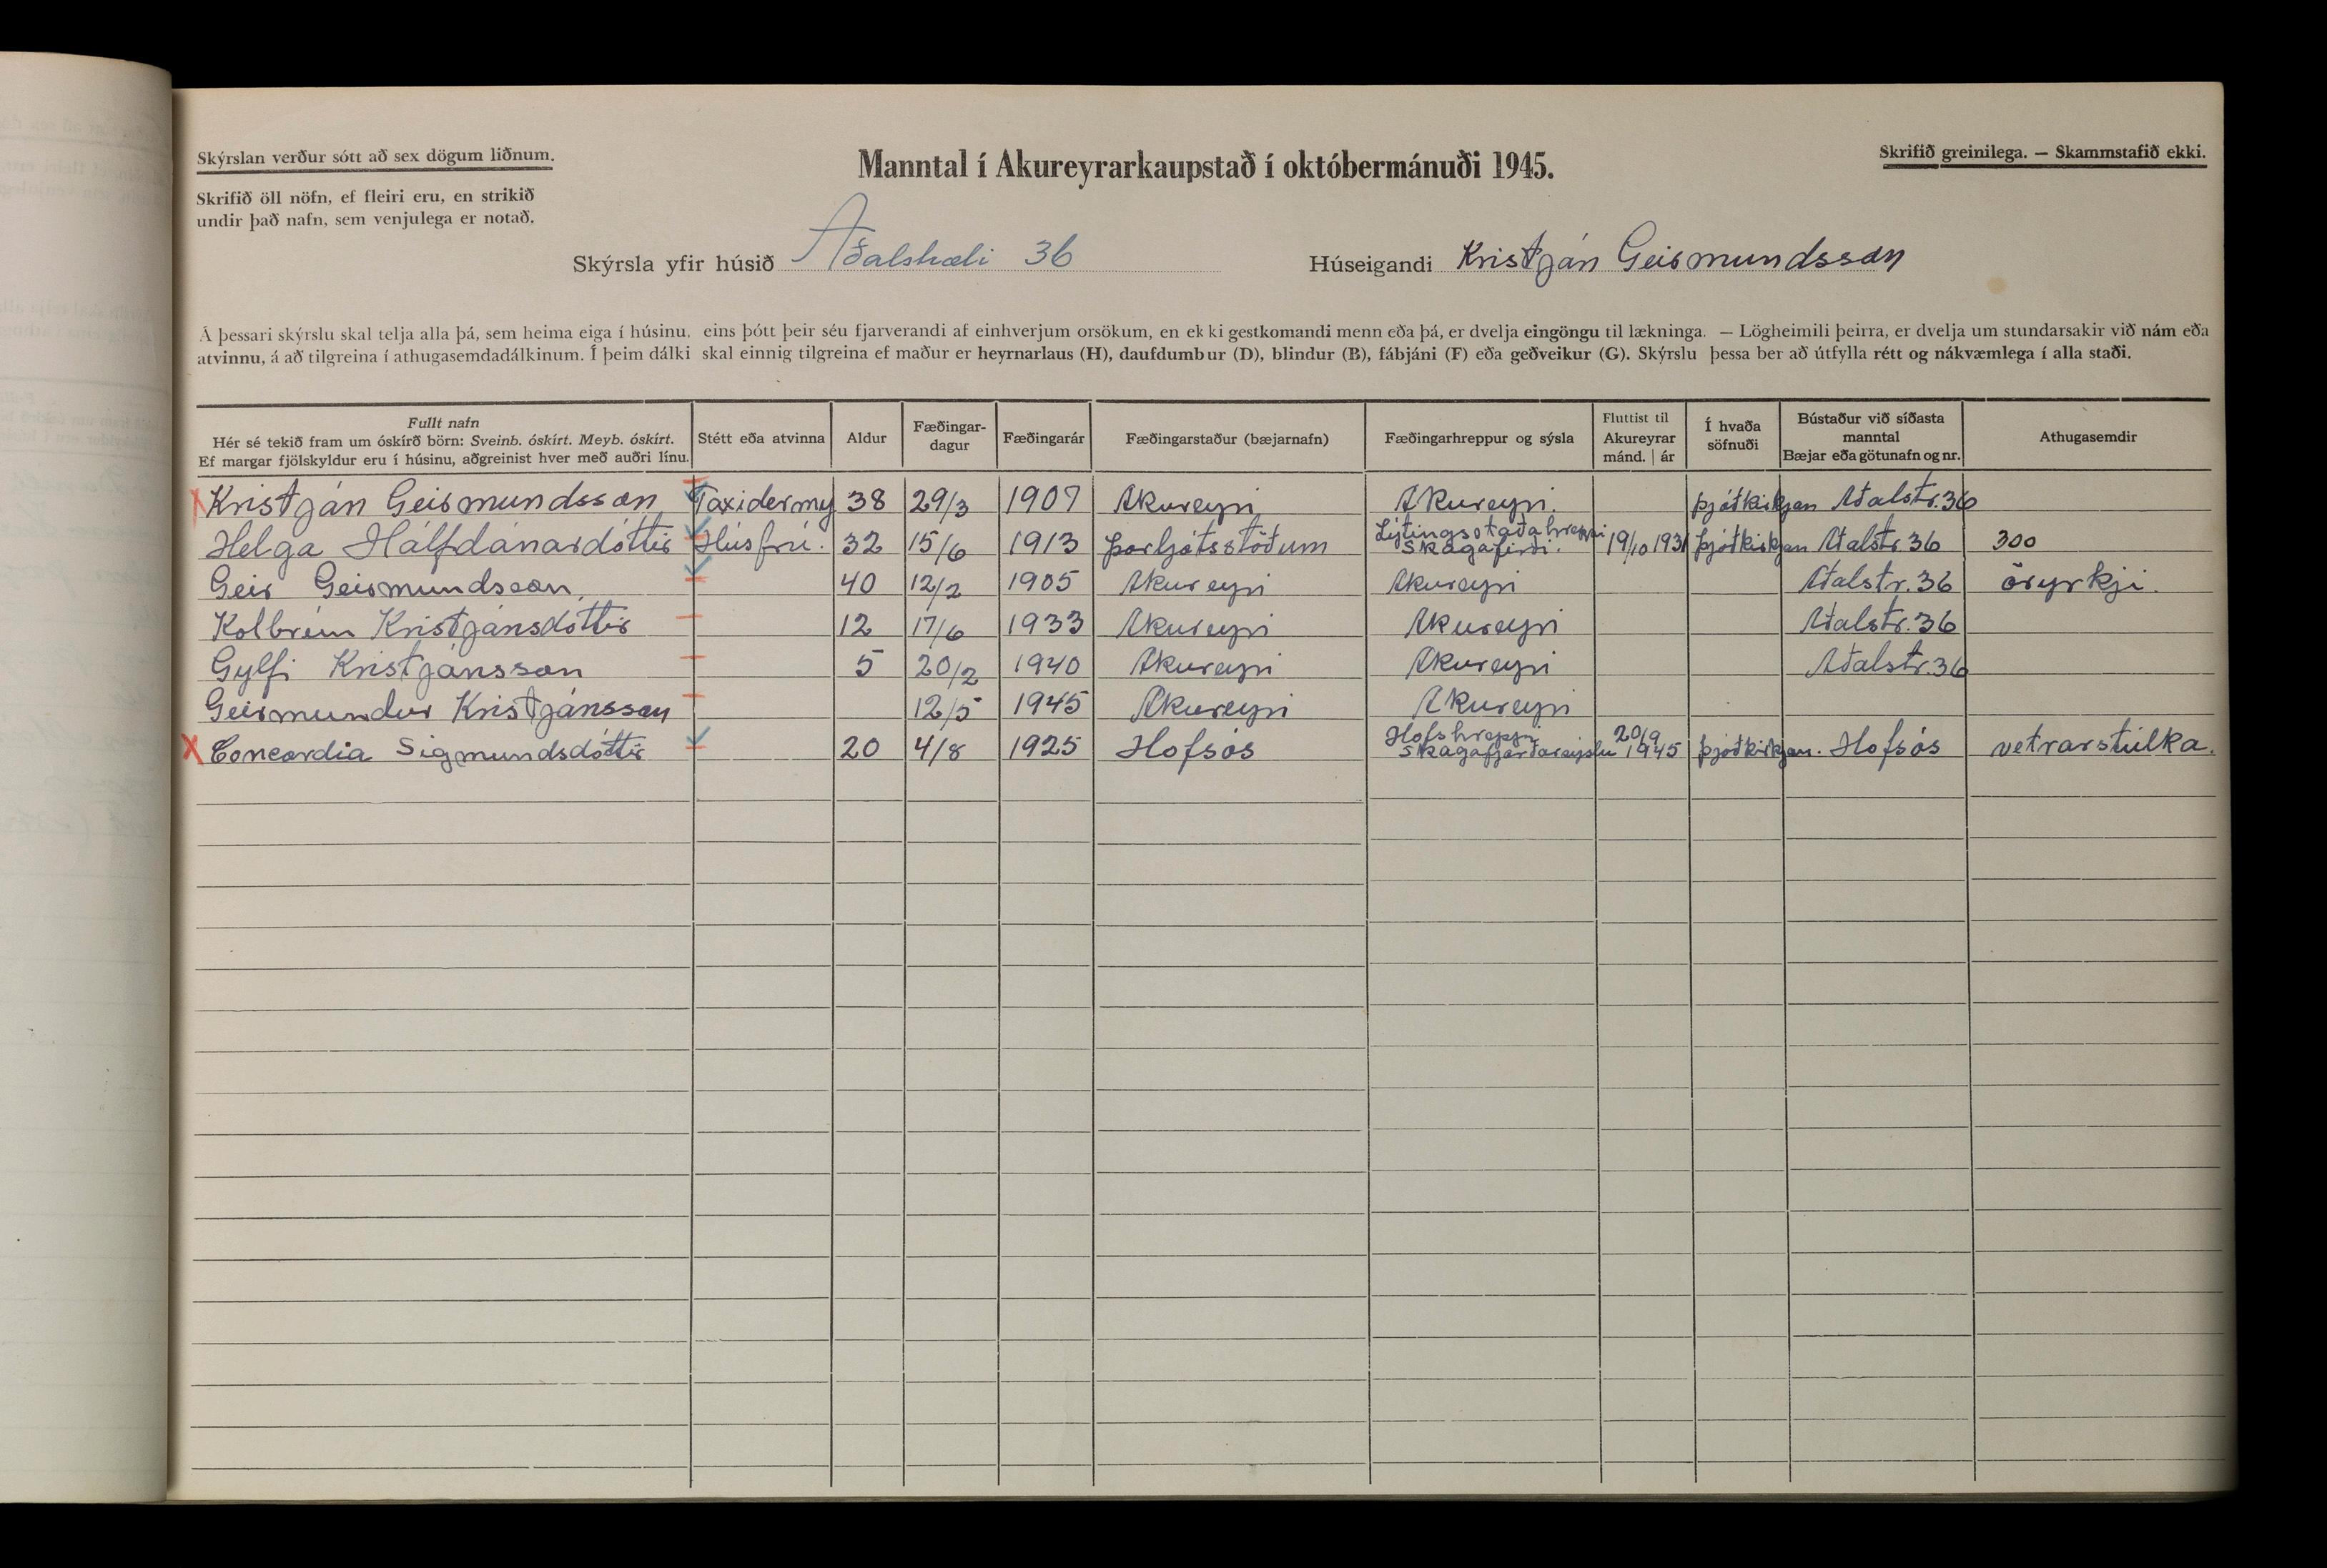 Skýrslan verður sótt að sex dögum liðnum.
Skrifið öll nöfn, ef fleiri eru, en strikið
undir það nafn, sem venjulega er notað.
Manntal í Akureyrarkaupstað í októbermánuði 1945.
Skrifið greinilega. — Skammstafið ekki.
Skýrsla yfir húsið Aðalstræti 36 Húseigandi Kristján Geirmundsson
Á þessari skýrslu skal telja alla þá, sem heima eiga í húsinu, eins þótt þeir séu fjarverandi af einhverjum orsökum, en ekki gestkomandi menn eða þá, er dvelja eingöngu til lækninga. — Lögheimili þeirra, er dvelja um stundarsakir við nám eða
atvinnu, á að tilgreina í athugasemdadálkinum. Í þeim dálki skal einnig tilgreina ef maður er heyrnarlaus (H), daufdumbur (D), blindur (B), fábjáni (F) eða geðveikur (G). Skýrslu þessa ber að útfylla rétt og nákvæmlega í alla staði.
Fullt nafn
Hér sé tekið fram um óskírð börn: Sveinb. óskírt. Meyb. óskírt.
Ef margar fjölskyldur eru í húsinu, aðgreinist hver með auðri línu.
Stétt eða atvinna
Aldur
Fæðingar-
dagur
Fæðingarár
Fæðingarstaður (bæjarnafn)
Fæðingarhreppur og sýsla
Fluttist til
Akureyrar
mánd. | ár
Í hvaða
söfnuði
Bústaður við síðasta
manntal
Bæjar eða götunafn og nr.
Athugasemdir
X Kristján Geirmundsson Taxidermy 38 29/3 1907 Akureyri Akureyri. þjóðkirkjan Aðalstr. 36
Helga Hálfdánardóttir Húsfrú. 32 15/6 1913 Þorljótsstöðum Lýtingsstaðahreppi Skagafirði. 19/10 1931 þjóðkirkjan Aðalstr. 36 300
Geir Geirmundsson 40 12/2 1905 Akureyri Akureyri Aðalstr. 36 öryrki.
Kolbrún Kristjánsdóttir 12 17/6 1933 Akureyri Akureyri Aðalstr. 36
Gylfi Kristjánsson 5 20/2 1940 Akureyri Akureyri Aðalstr. 36
Geirmundur Kristjánsson 12/5 1945 Akureyri Akureyri
X Concordia Sigmundsdóttir 20 4/8 1925 Hofsós Hofshreppi Skagafjarðarsýslu 20/9 1945 þjóðkirkjan. Hofsós vetrarstúlka.